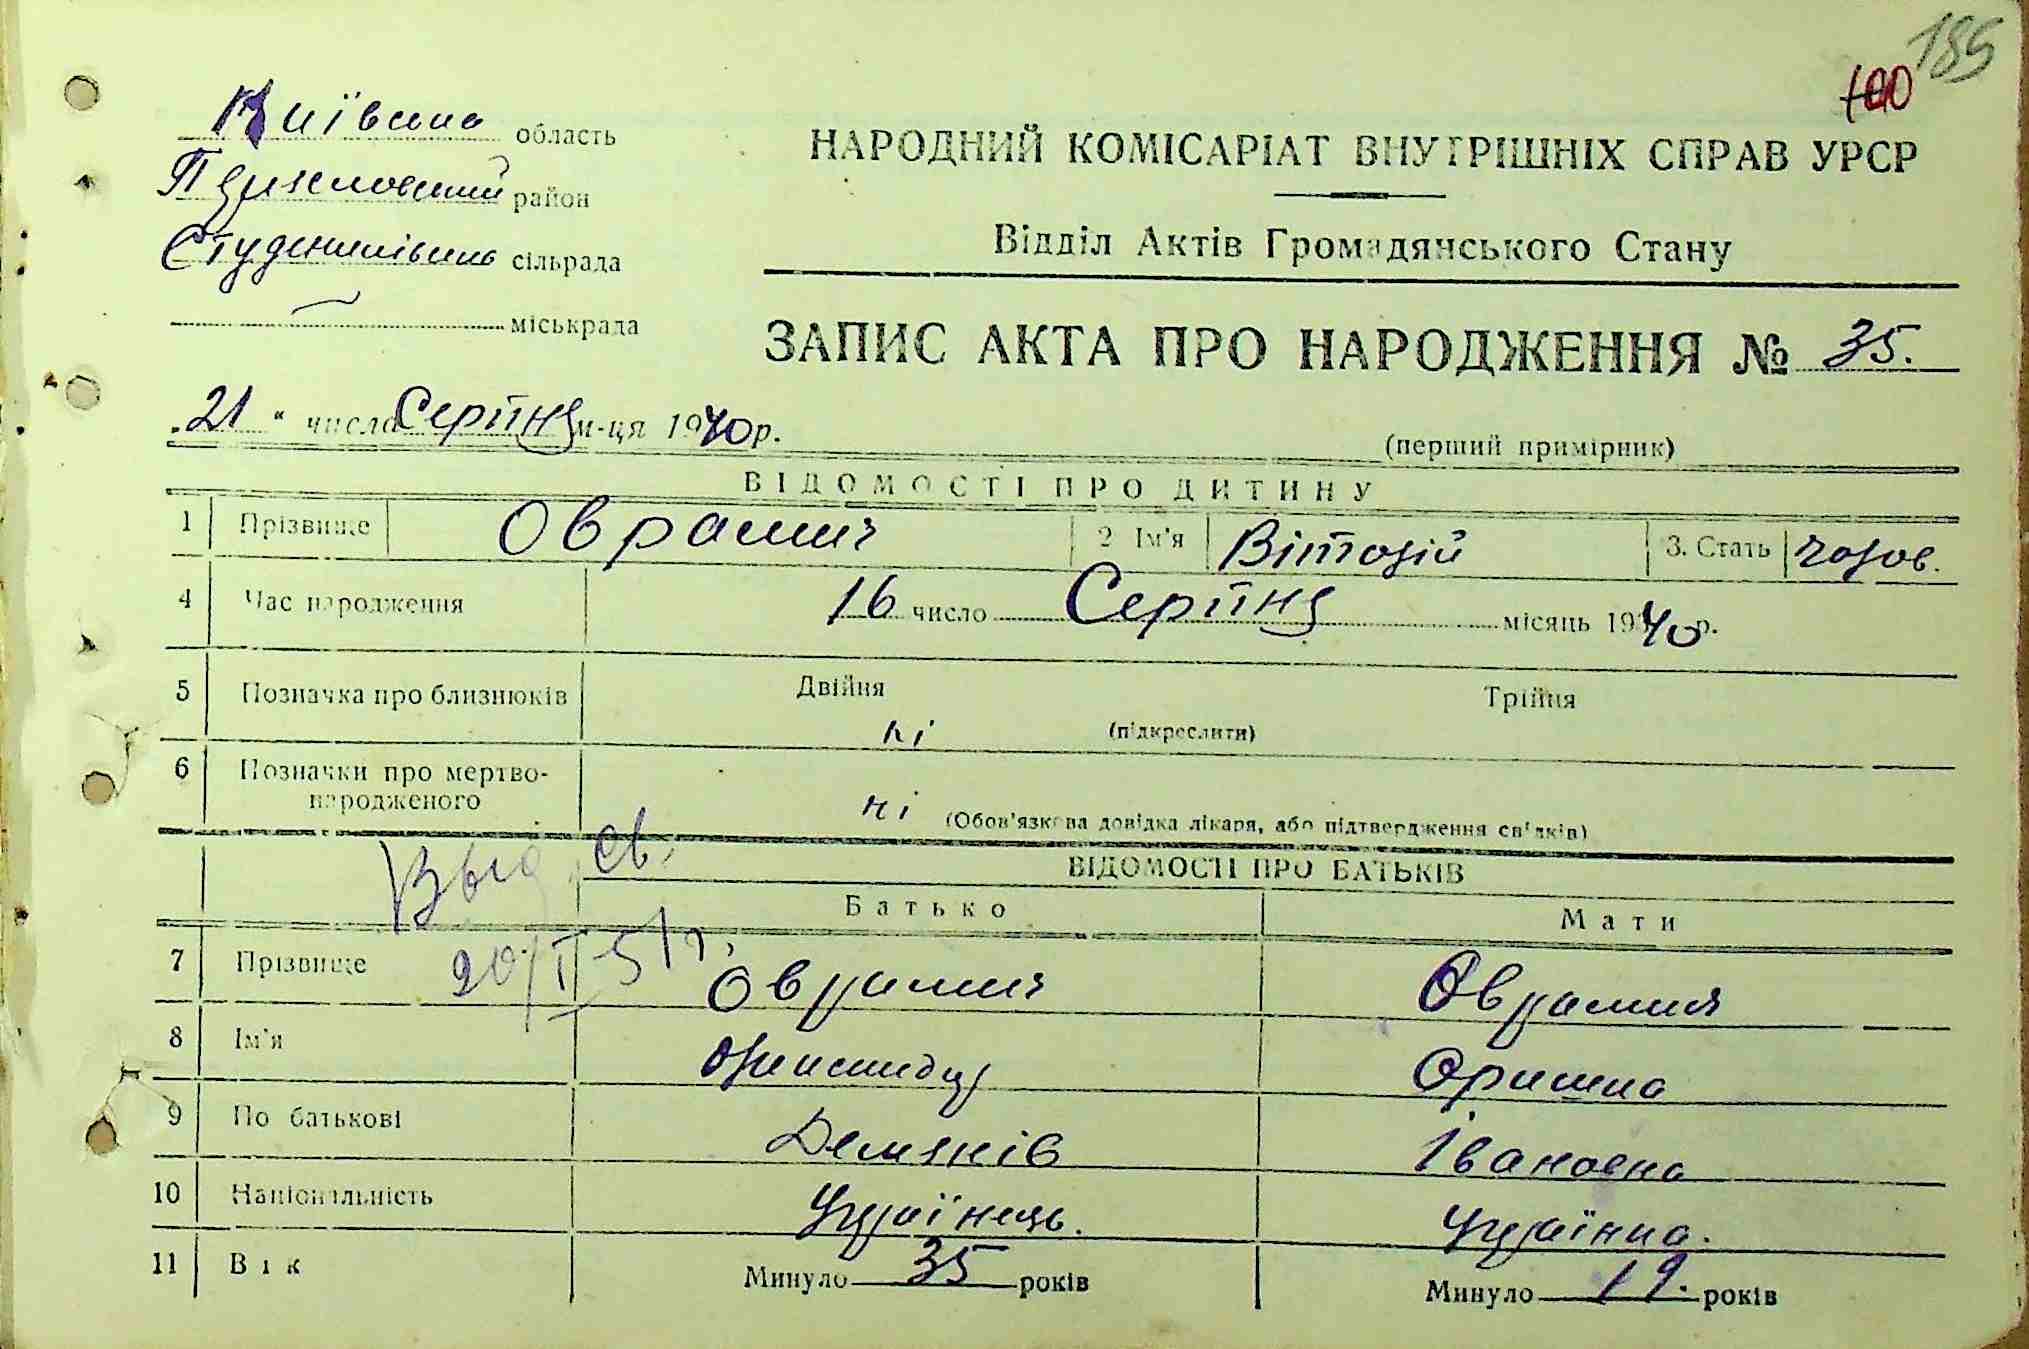 185
100
Київська область
район
сільрада
міськрада
НАРОДНИЙ КОМІСАРІАТ ВНУТРІШНІХ СПРАВ УРСР
Відділ Актів Громадянського Стану
ЗАПИС АКТА ПРО НАРОДЖЕННЯ № 35.
„21“ числа Серпня м-ця 1940 р.
(перший примірник)
ВІДОМОСТІ ПРО ДИТИНУ
1 Прізвище Оврамич 2 Ім'я Віталій 3. Стать чолов.
4 Час народження 16 число Серпня місяць 1940 р.
5 Позначка про близнюків Двійня Трійня
ні (підкреслити)
6 Позначки про мертво-
народженого
ні (Обов'язкова довідка лікаря, або підтвердження свідків)
Выд. св.
20/I 51 г.
ВІДОМОСТІ ПРО БАТЬКІВ
Батько Мати
7 Прізвище Оврамич Оврамич
8 Ім'я Оришка
9 По батькові Демянів Івановна
10 Національність Українець. Українка.
11 Вік Минуло 35 років Минуло 19. років